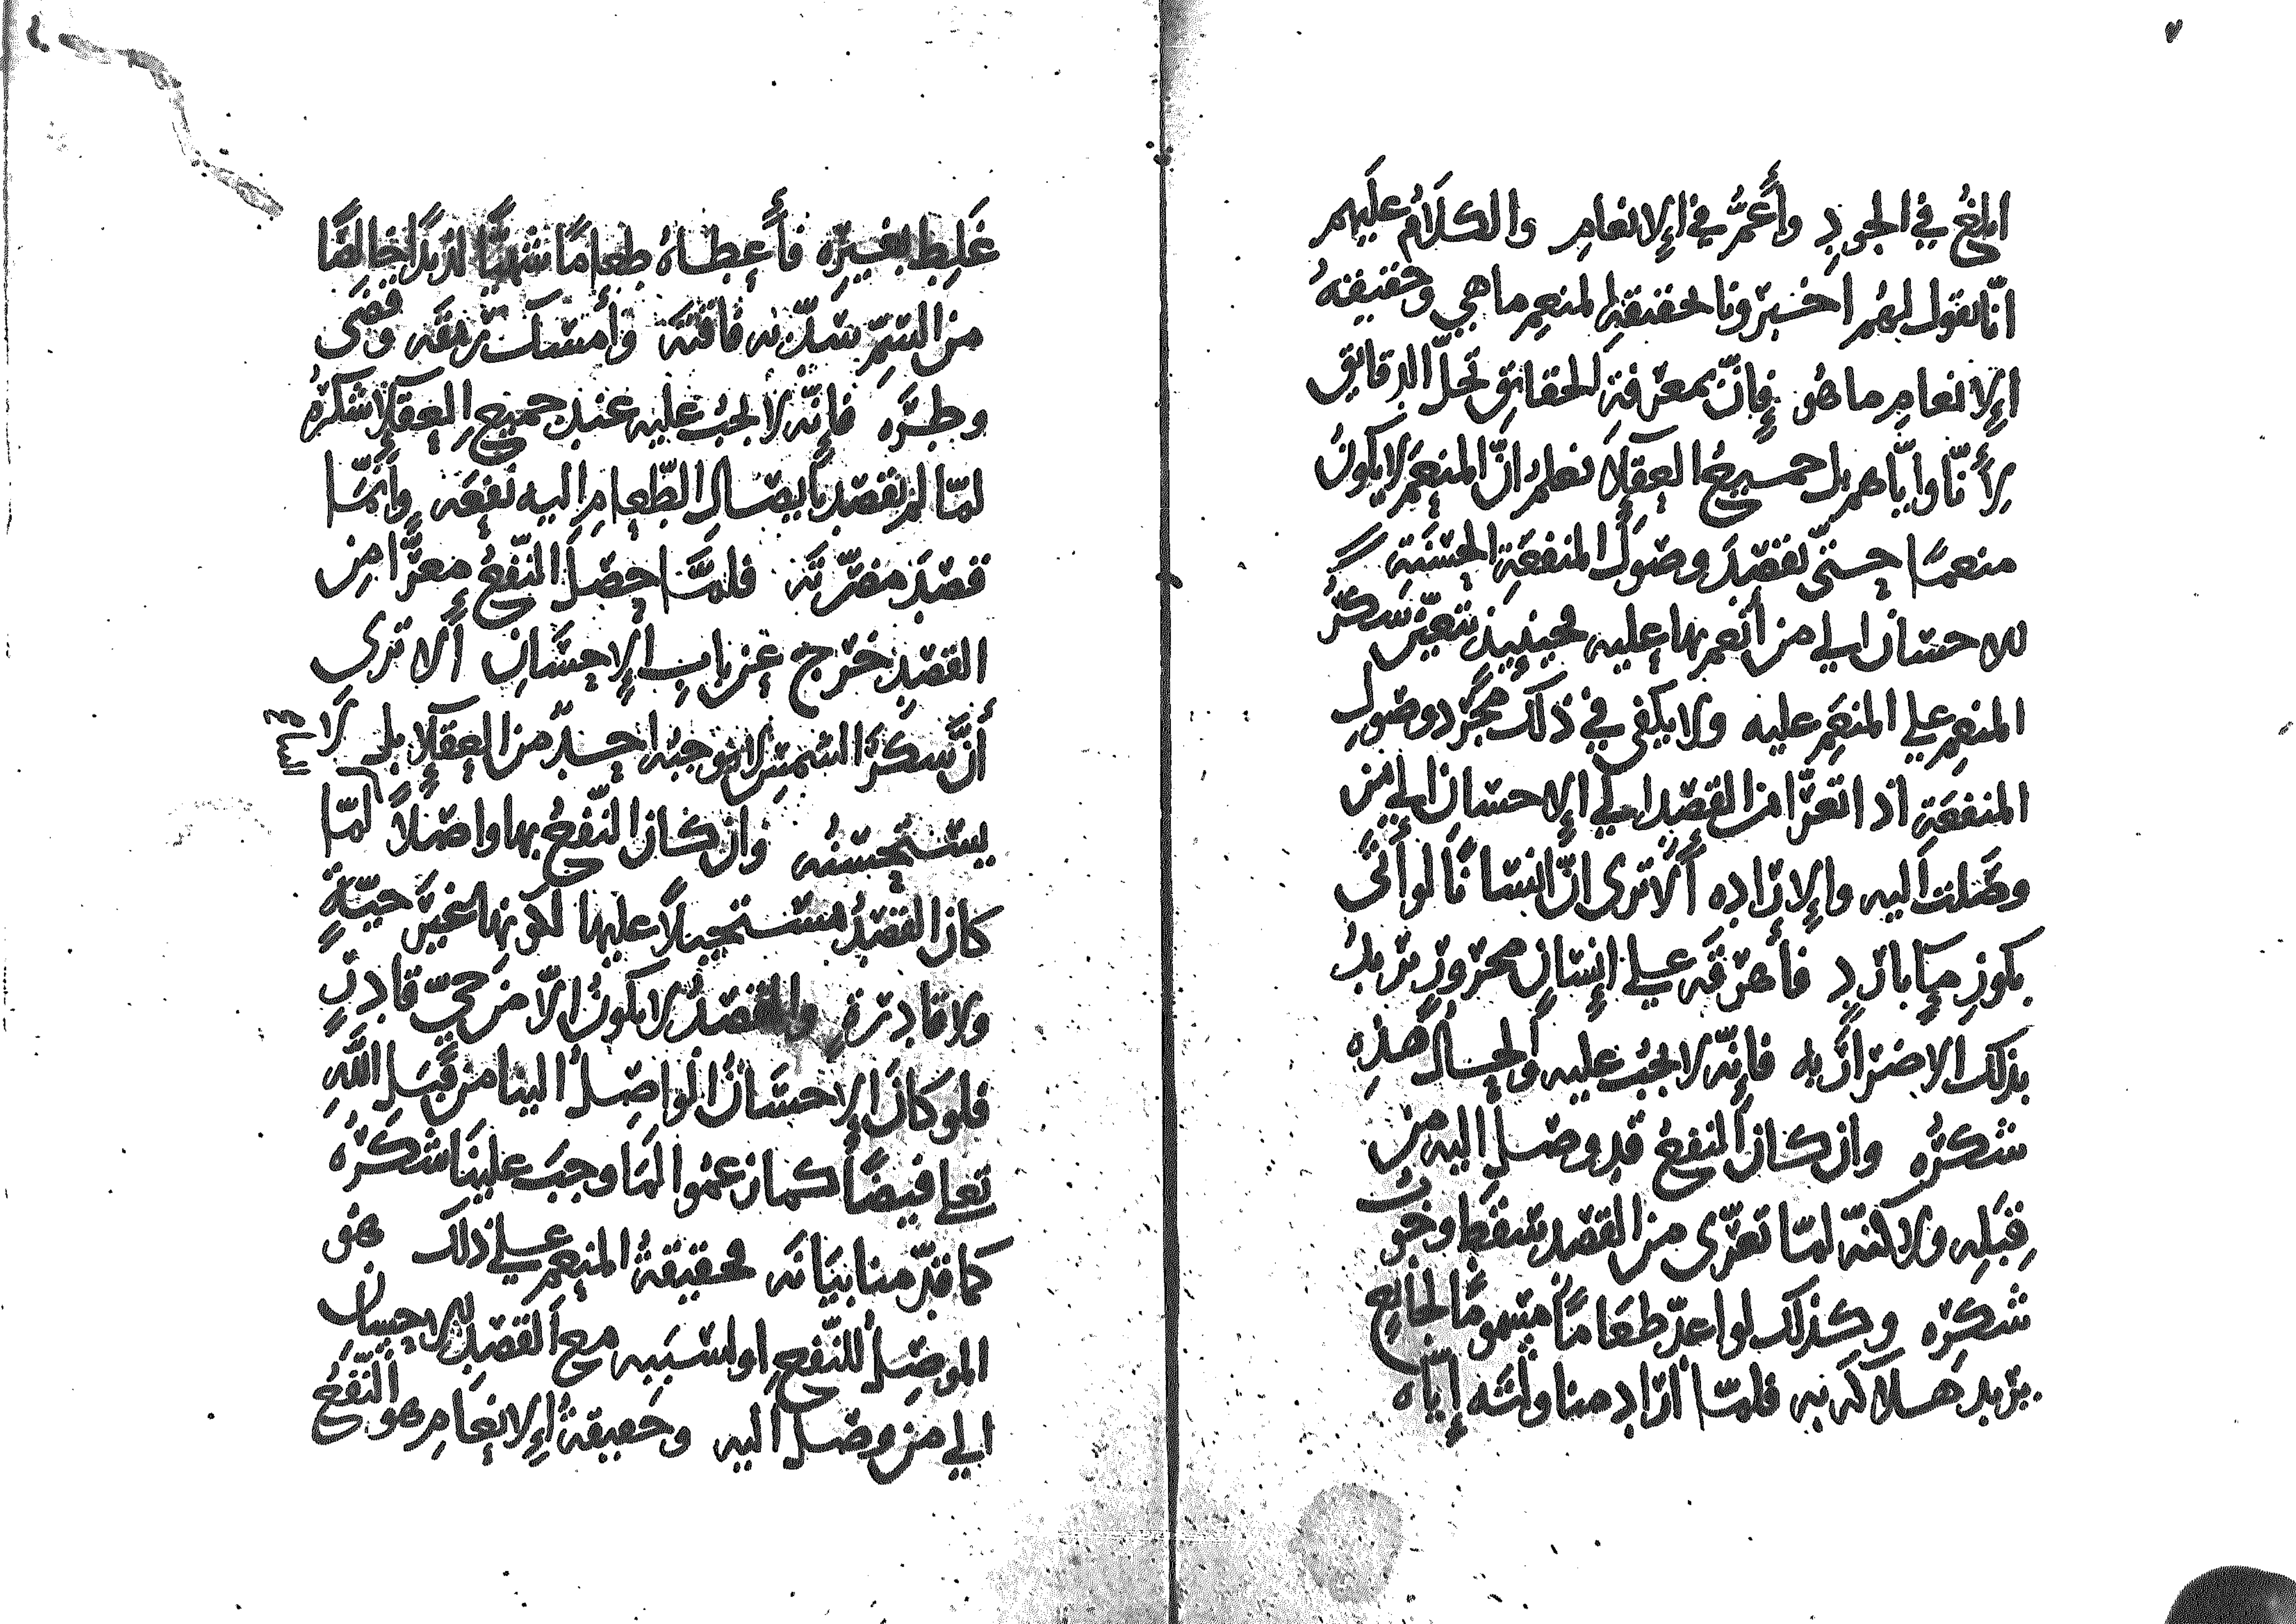 ٧
ابلغُ في الجودِ وأَعَمُّ في الإِنعامِ والكلَامُ عليهم
انّا نقول لهُم اخبرونا بحقيقةِ المنعِمِ ما هي وحقيقةُ
الإِنعامِ ما هُو فإنّ بمعرفةِ الحقايقِ تحلّ الدقايق
لِأَنّا وايّاهم بل جميعُ العقلآ نعلمُ انّ المنعِمَ لا يكونُ
منعمًا حتّى يقصدَ وصولَ المنفعةِ الحسَنةِ
للاحسان الى من أنعمَ بها عليه فحينيذٍ يتعيّن شكرُ
المنعِمِ على المنعَمِ عليه ولا يكفي في ذلك مجرّد وصولِ
المنفعَةِ اذا تعرّا من القصد الى الإِحسان الى من
وصَلت اليه والإِرادِه ألَا ترى انّ انسانًا لو أتَى
بكوزِ مآٍ باردٍ فأهرقَه على إنسانٍ محرورٍ يريدُ
بذلك الاضرارَ بِه فإنّه لا يجبُ عليه والحالُ هَذِه
شكرُه وان كان النفعُ قد وصلَ اليه من
قِبَلِه ولاكنّه لمّا تعرّى من القصد سقط وجوبُ
شكرِه وكذلك لو اعدّ طعَامًا مسمومًا لجايع
يريد هلاكَه به فلمّا أرادَ مناولتَه إيّاه
غَلِط بغيرِه فأَعطاهُ طعامًا شهيًّا لذيذًا خالصًا
من السَمّ سَدّ به فاقتَه وأمسك رمقَه وقضَى
وطرَه فإنّه لا يجبُ عليه عند جميعِ العقلآِ شكرُه
لمّا لم يقصد بايصالِ الطّعامِ اليه نفعَه وانّما
قصَد مضرّتَه فلمَّا حصلَ النّفعُ معرًّا من
القصدِ خرج عن بابِ الإحسَانِ ألا ترى
أنّ شكرَ الشمسِ لا يوجبُه احدٌ من العقلآِ بل لَا
يستحسنُه وان كان النّفعُ بها واصلًا لمّا
كان القصدُ مستحيلًا عليها لكونها غيرَ حيّةٍ
ولا قادرةٍ والقصدُ لا يكونُ الّا من حيّ قادرٍ
فلو كانَ الإحسَانُ الواصِلُ الينا من قِبَلِ اللهِ
تعلى فيضًا كما زعموا لمَا وجبَ علينَا شكرُه
كما قدّمنا بيَانَه فحقيقةُ المنعِمِ على ذلك هو
الموصِلُ للنّفعِ او لسَبَبِه معَ القصدِ للإحسانِ
الى من وصلَ اليه وحقيقةُ الإنعَامِ هو النّفعُ